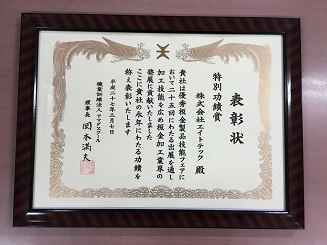 表彰状
特別功績賞
株式会社エイトテック 殿
貴社は優秀板金製品技能フェアに
おいて二十五回にわたる出展を通し
加工技能を広め板金加工業界の
発展に貢献いたしました
ここに貴社の永年にわたる功績を
称え表彰いたします
平成二十七年三月七日
職業訓練法人 アマダスクール
理事長 岡本満夫